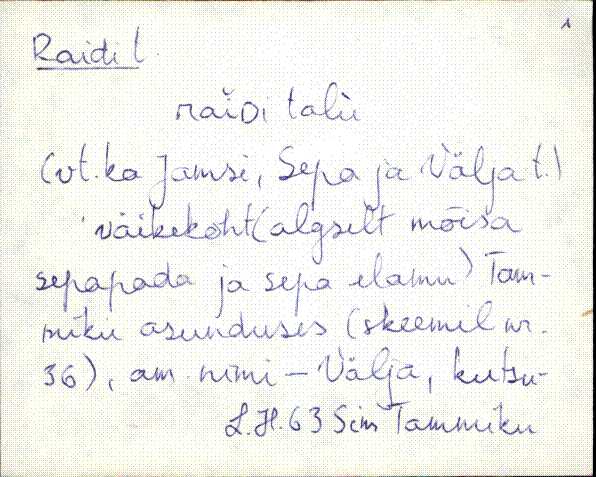 1
Raidi t.
raiDi talù
(vt. ka Jamsi, Sepa ja Välja t.)
väikekoht (algselt mõisa
sepapada ja sepa elamu) Tam-
miku asunduses (skeemil nr.
36), am nimi – Välja, kutsu-
L.H. 63 Sim Tammiku